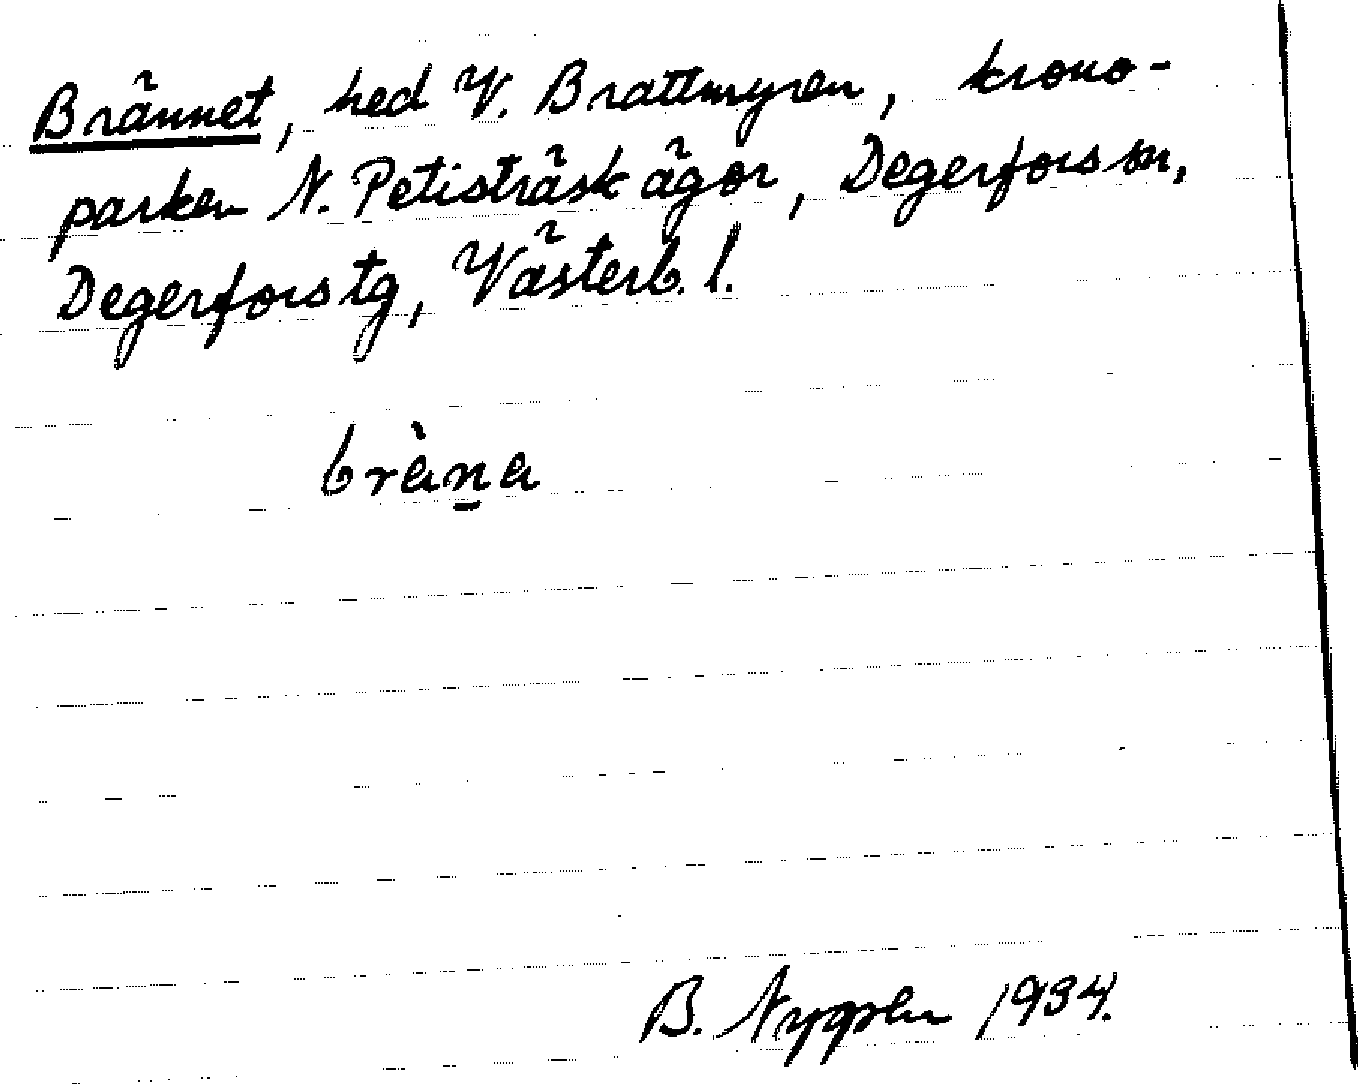 Brännet, hed V. Brattmyren, krono-
parken N. Petisträsk ägor, Degerfors sn,
Degerfors tg, Västerb. l.
bràn̲a
B. Nygren 1934.